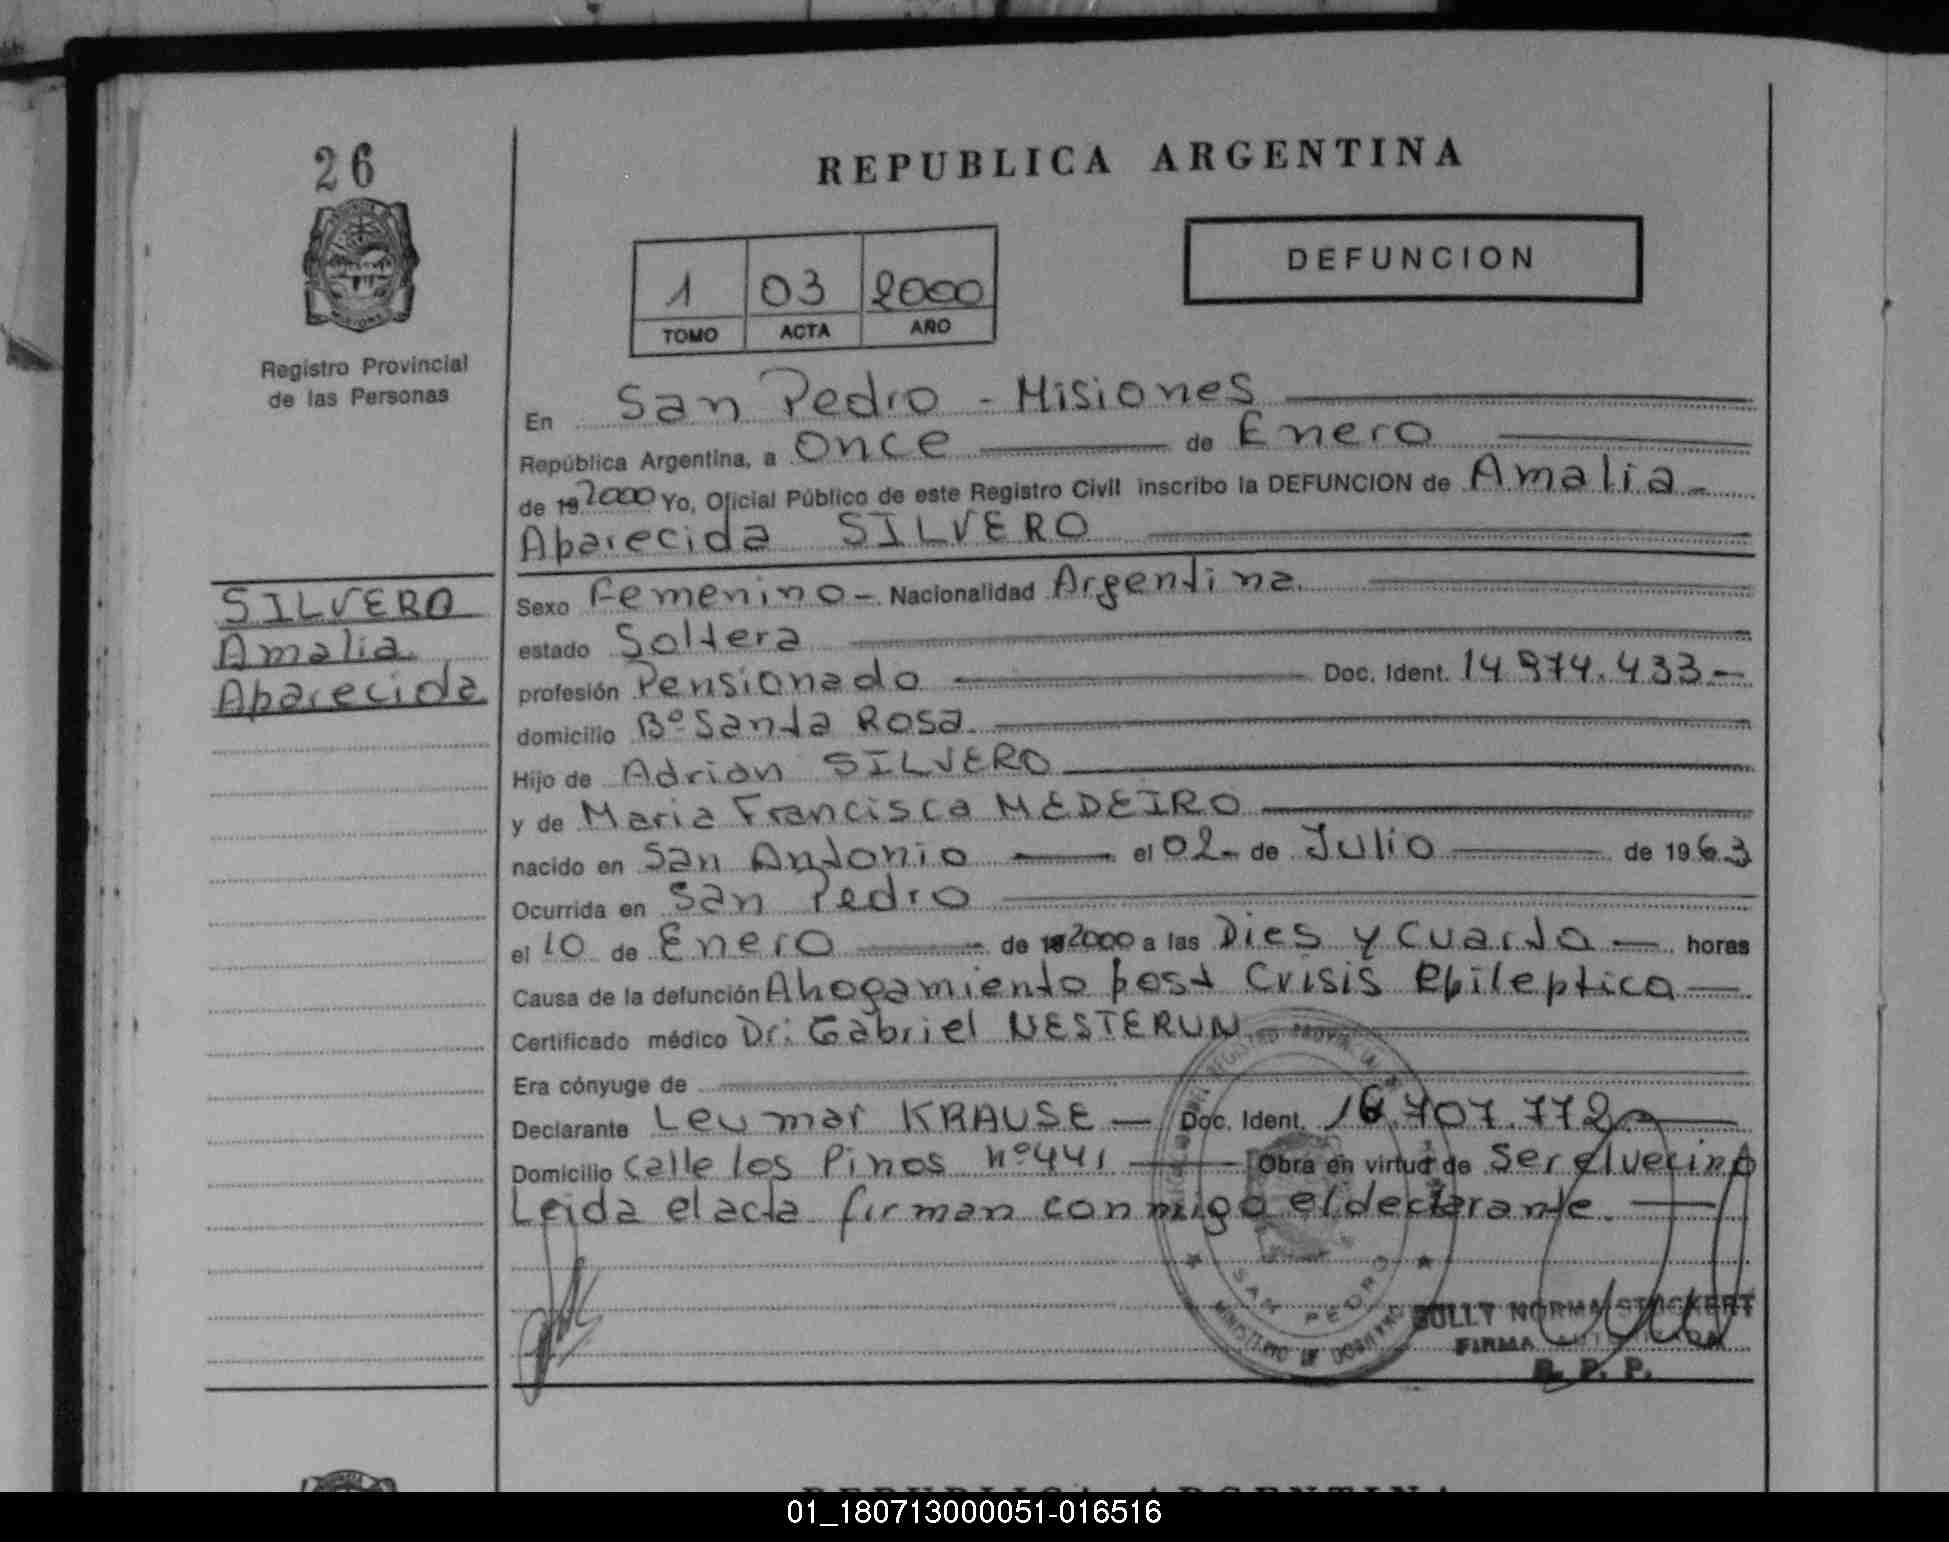 26
REPUBLICA ARGENTINA
DEFUNCION
1 03 2000
TOMO ACTA AÑO
Registro Provincial
de las Personas
En San Pedro - Misiones
República Argentina, a Once de Enero
de 19 2000 Yo, Oficial Público de este Registro Civil inscribo la DEFUNCION de Amalia
Aparecida SILVERO
SILVERO
Amalia
Aparecida
Sexo Femenino - Nacionalidad Argentina.
estado Soltera
profesión Pensionado Doc. Ident. 14.974.433-
domicilio Bº Santa Rosa.
Hijo de Adrian SILVERO
y de Maria Francisca MEDEIRO
nacido en San Antonio el 02- de Julio de 1963
Ocurrida en San Pedro
el 10 de Enero de 2000 a las Dies y Cuarto horas
Causa de la defunción Ahogamiento post Crisis Epileptica
Certificado médico Dr: Gabriel NESTERUN
Era cónyuge de
Declarante Leumar KRAUSE Doc. Ident. 16.707.772
Domicilio Calle los Pinos nº 441 Obra en virtud de Ser el vecino
Leida el acta firman conmigo el declarante.
SAN PEDRO
NORMA STOCKERT
FIRMA AUTORIZADA
R. P. P.
REPUBLICA ARGENTINA
01_180713000051-016516